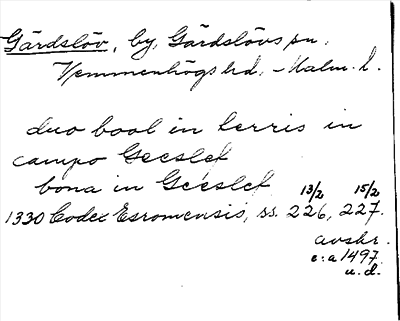 Gärdslöv, by, Gärdslövs sn.
Vemmenhögs hd. – Malm. l.
duo bool in terris in
campo Geeslef
bona in Geeslef 13/2 15/2
1330 Codex Esromensis, ss. 226, 227.
avskr.
c:a 1497
u.d.